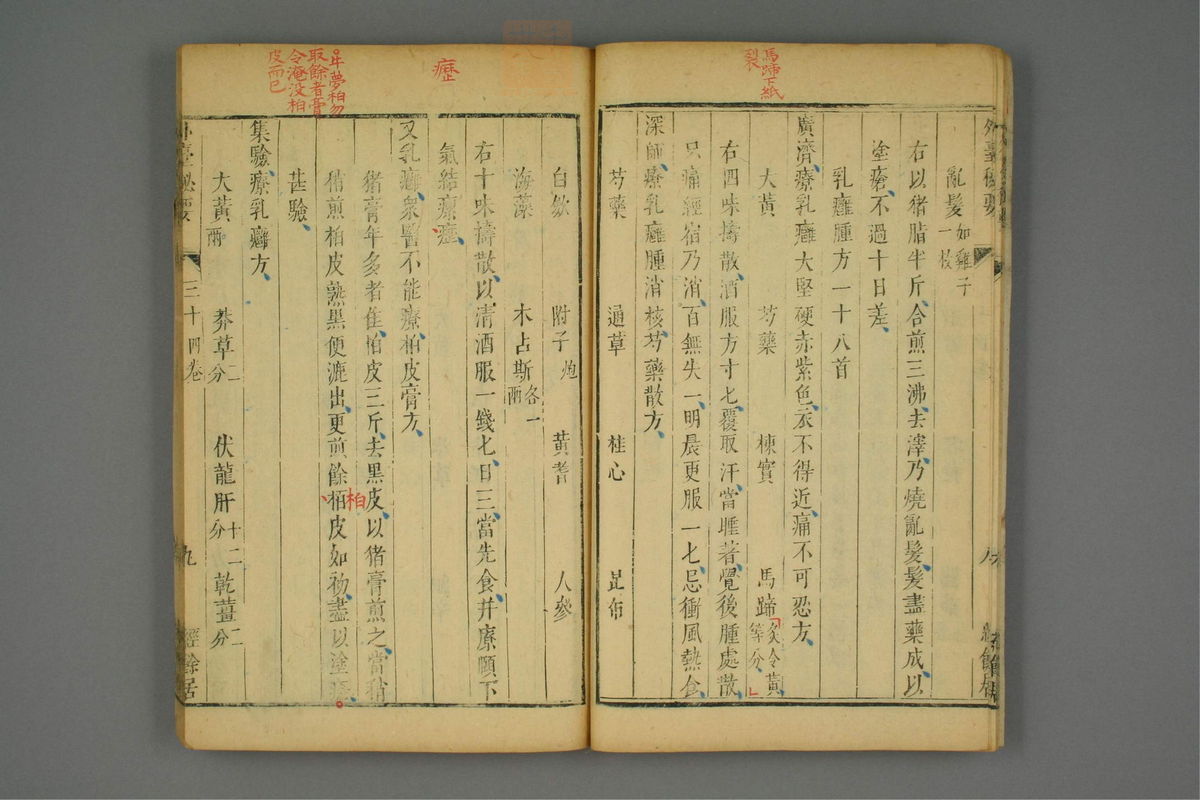 馬蹄下紙
裂
外臺秘要
亂髮如雞子一枚
右以猪脂半斤合煎三沸去滓乃燒亂髮髮盡藥成以
塗瘡不過十日差
乳癰腫方一十八首
廣濟療乳癰大堅硬赤紫色衣不得近痛不可忍方
大黃 芍藥 楝實 馬蹄炙令黃等分
右四味擣散酒服方寸匕覆取汗當睡著覺後腫處散
只痛經宿乃消百無失一明晨更服一匕忌衝風熱食
深師療乳癰腫消核芍藥散方
芍藥 通草 桂心 昆布
白斂 附子炮 黃耆 人參
海藻 木占斯各一兩
右十味擣散以清酒服一錢匕日三當先食并療頤下
氣結瘰癧
又乳癰衆醫不能療柏皮膏方
猪膏年多者佳柏皮三斤去黑皮以猪膏煎之當稍
稍煎柏皮熟黑便漉出更煎餘栢皮如初盡以塗瘡
甚驗
集驗療乳癰方
大黃二兩 莽草二分 伏龍肝十二分 乾薑二分
外臺秘要 三十四卷 九 經餘居
癧
夢柏勿
取餘者膏
令淹没柏
皮而已
柏